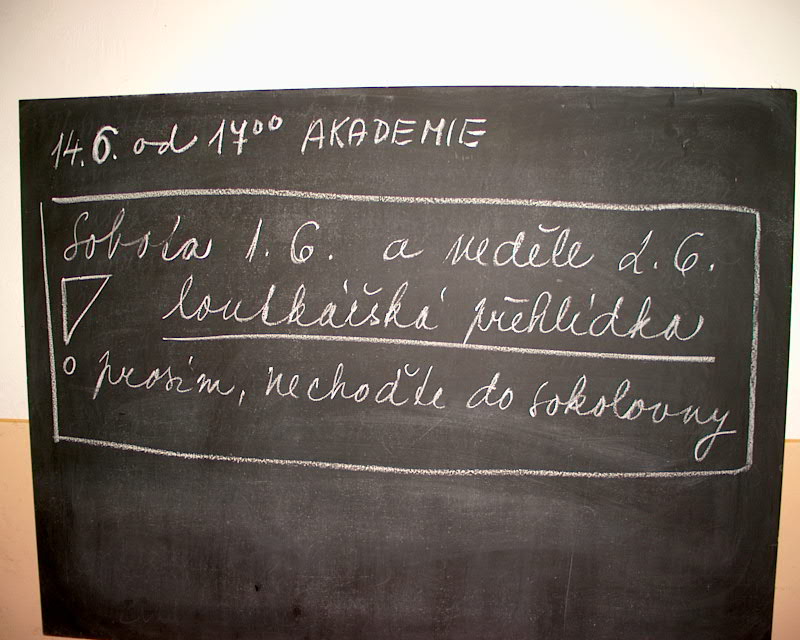 14.6. od 17⁰⁰ AKADEMIE
Sobota 1.6. a neděle 2.6.
loutkářská přehlídka
! prosím, nechoďte do sokolovny